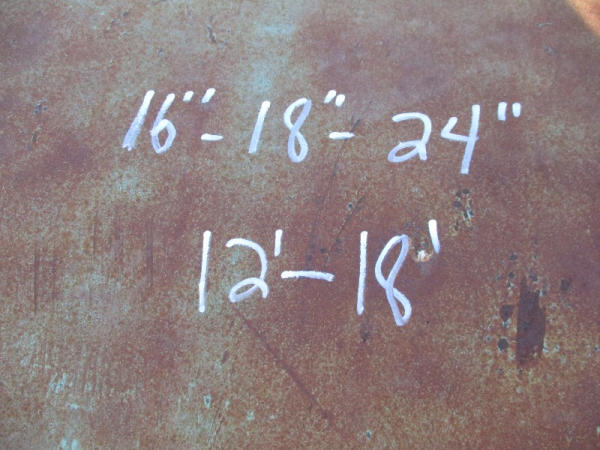 16"- 18"- 24"
12'- 18'